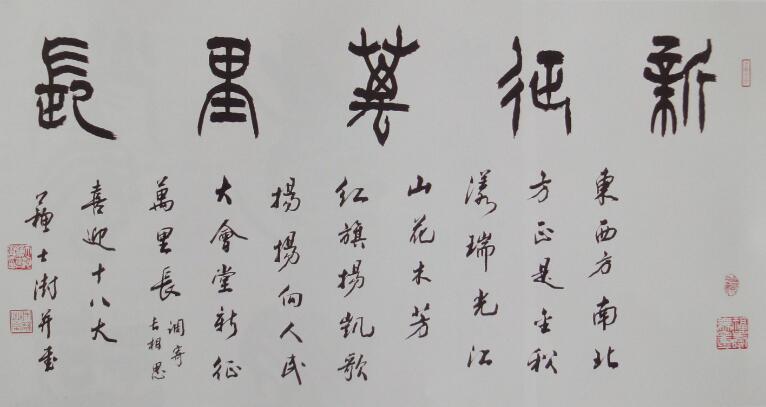 新征萬里長
東西方南北
方正是金秋
漾瑞光江
山花木芳
紅旗揚凱歌
揚揚向人民
大會堂新征
萬里長
調寄
長相思
喜迎十八大
蘇士澍并書